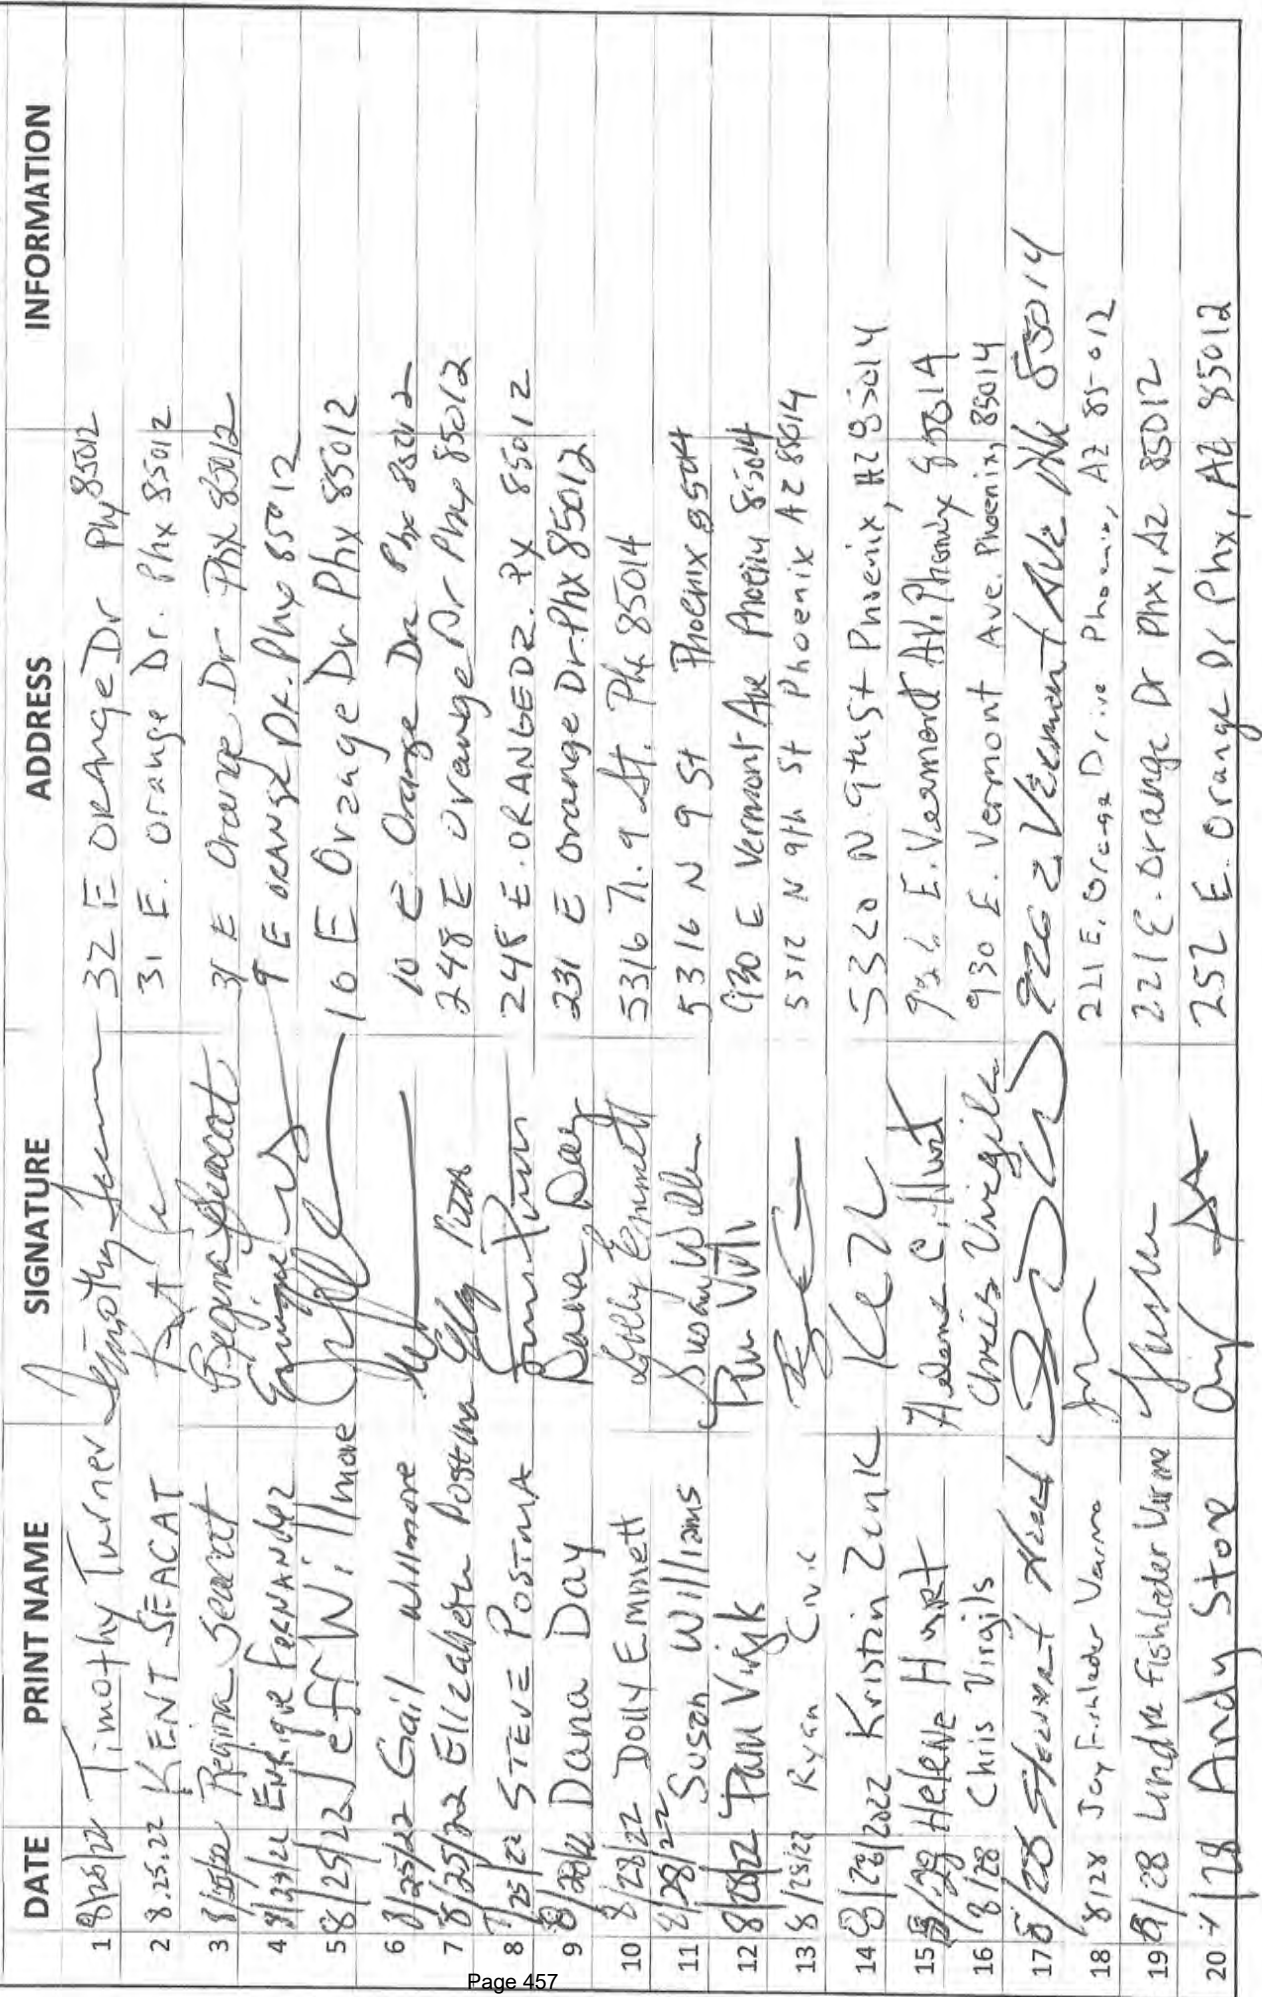 DATE PRINT NAME SIGNATURE ADDRESS INFORMATION
1 8/25/22 Timothy Turner Timothy Turner 32 E ORANGE Dr Phx 85012
2 8.25.22 KENT SEACAT 31 E. Orange Dr. Phx 85012
3 Regina Seacat Regina Seacat 31 E Orange Dr Phx 85012
4 Enrique Fernandez 9 E ORANGE DR. Phx 85012
5 8/25/22 Jeff Willmore 10 E Orange Dr Phx 85012
6 8/25/22 Gail Willmore 10 E. Orange Dr Phx 85012
7 8/25/22 Elizabeth Postma 248 E Orange Dr Phx 85012
8 /25/22 STEVE POSTMA 248 E. ORANGE DR. PX 85012
9 Dana Day Dana Day 231 E Orange Dr. Phx 85012
10 8/28/22 Dolly Emmett Dolly Emmett 5316 N. 9 St. Phx 85014
11 8/28/22 Susan Williams 5316 N 9 St Phoenix 85014
12 8/28/22 Pam Virgil 930 E Vermont Ave Phoenix 85014
13 8/28/22 Ryan 5312 N 9th St Phoenix AZ 85014
14 8/28/2022 Kristin Zenk 5320 N. 9th St Phoenix, AZ 85014
15 Helene Hurt Helene C. Hurt E. Vermont Av. Phoenix 85014
16 8/28 Chris Virgils Chris Virgils 930 E. Vermont Ave. Phoenix, 85014
17 8/28 Stewart Vermont Ave Phx 85014
18 8/28 Jay Fishleder Varma 221 E. Orange Drive Phoenix, AZ 85012
19 8/28 Fishleder Varma 221 E. Orange Dr Phx, AZ 85012
20 /28 Andy Stone 252 E. Orange Dr Phx, AZ 85012
Page 457